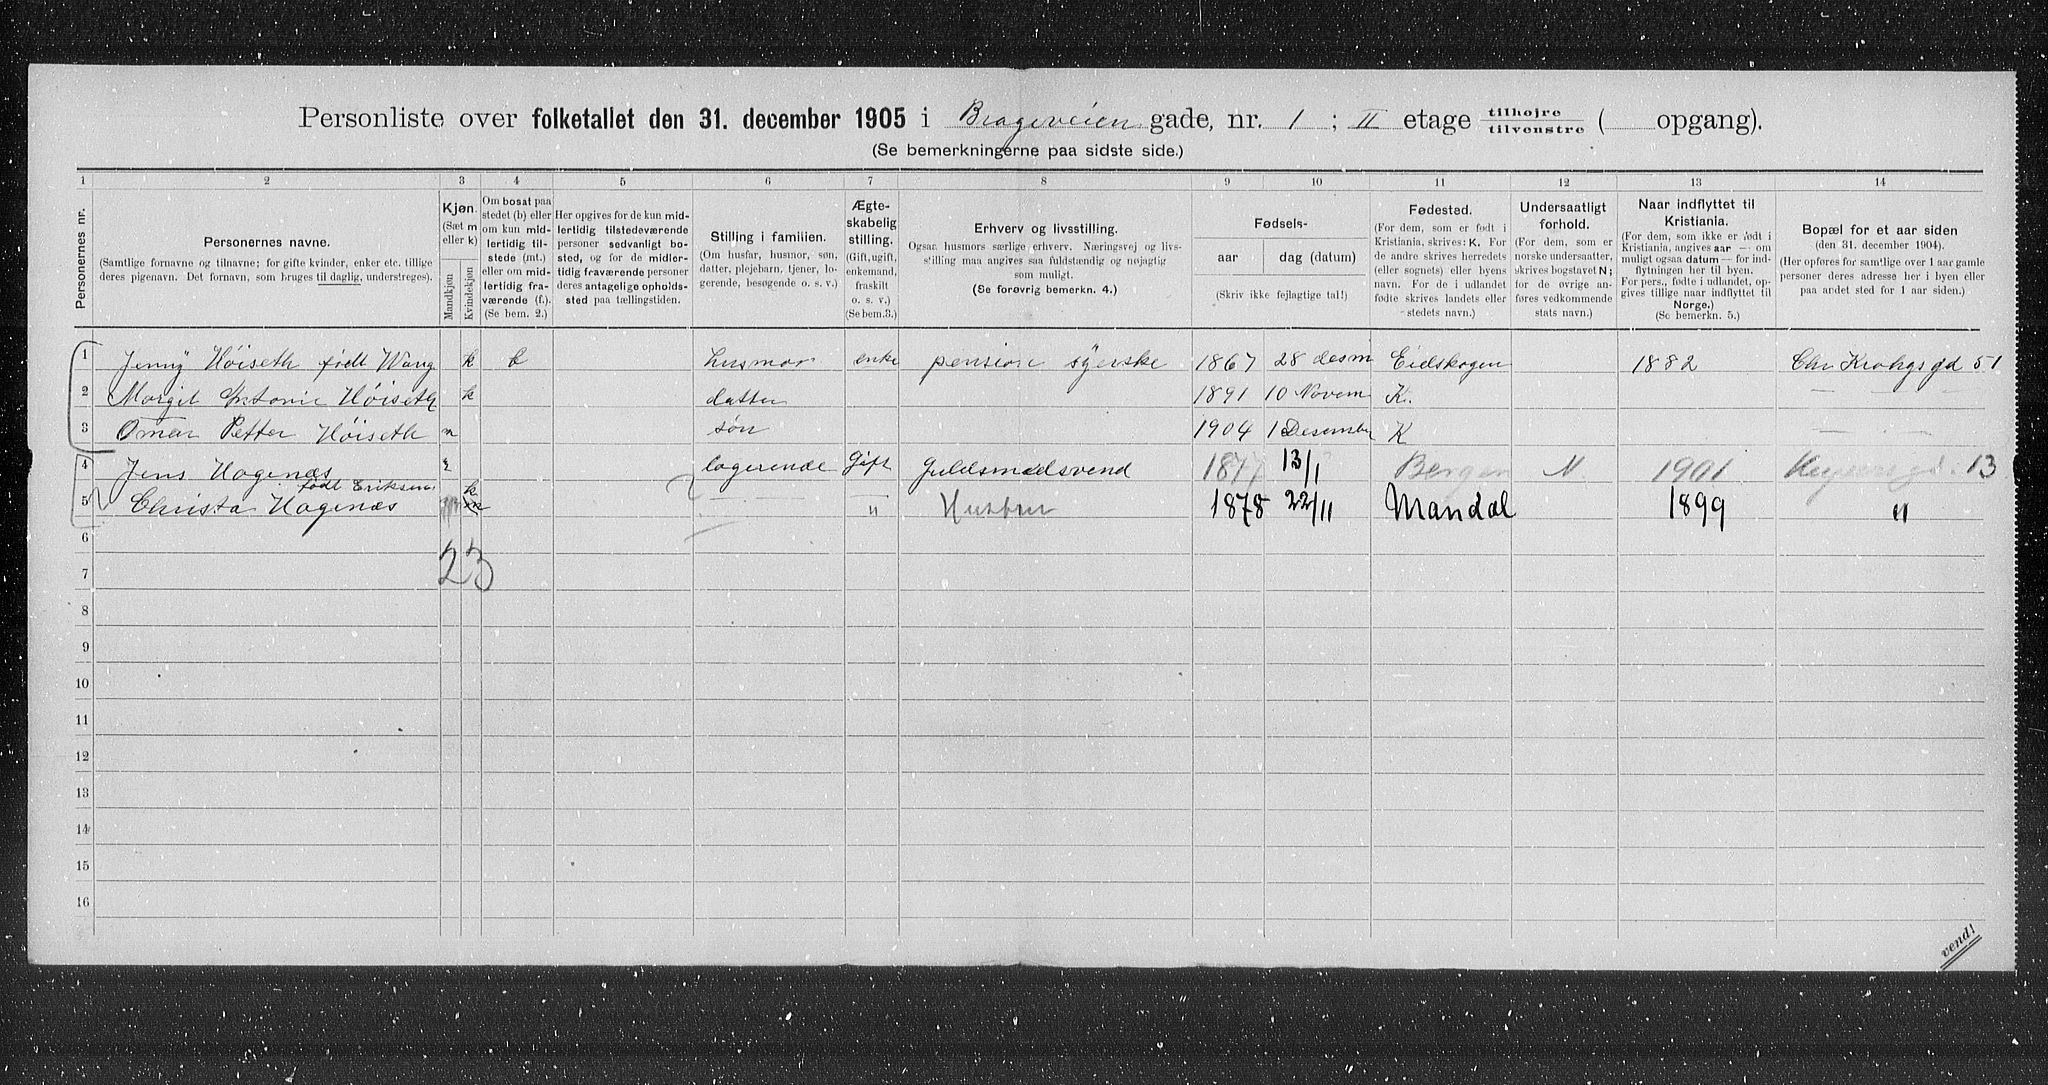 Personliste over folketallet den 31. december 1905 i Brageveien gade, nr. 1 ; II etage tilhøjre / tilvenstre ( opgang).
(Se bemerkningerne paa sidste side.)
1 2 3 4 5 6 7 8 9 10 11 12 13 14
Personernes nr.
Personernes navne.
(Samtlige fornavne og tilnavne; for gifte kvinder, enker etc. tillige deres pigenavn. Det fornavn, som bruges til daglig, understreges).
Kjøn.
(Sæt m eller k)
Mandkjøn
Kvindekjøn
Om bosat paa stedet (b) eller om kun midlertidig tilstede (mt.) eller om midlertidig fraværende (f.). (Se bem. 2.)
Her opgives for de kun midlertidig tilstedeværende personer sedvanligt bosted, og for de midlertidig fraværende personer deres antagelige opholdssted paa tællingstiden.
Stilling i familien.
(Om husfar, husmor, søn, datter, plejebarn, tjener, logerende, besøgende o. s. v.)
Ægteskabelig stilling.
(Gift, ugift, enkemand, fraskilt o. s. v.) (Se bem.3.)
Erhverv og livsstilling.
Ogsaa husmors særlige erhverv. Næringsvej og livsstilling maa angives saa fuldstændig og nøjagtig som muligt.
(Se forøvrig bemerkn. 4.)
Fødsels-
aar
dag (datum)
(Skriv ikke fejlagtige tal!)
Fødested.
(For dem, som er født i Kristiania, skrives: K. For de andre skrives herredets (eller sognets) eller byens navn. For de i udlandet fødte skrives landets eller stedets navn.)
Undersaatligt forhold.
(For dem, som er norske undersaatter, skrives bogstavet N; for de øvrige anføres vedkommende stats navn.)
Naar indflyttet til Kristiania.
(For dem, som ikke er født i Kristiania, angives aar — om muligt ogsaa datum — for indflytningen her til byen. For pers., fødte i udlandet, opgives tillige naar indflyttet til Norge.)
(Se bemerkn. 5.)
Bopæl for et aar siden
(den 31. december 1904).
(Her opføres for samtlige over 1 aar gamle personer deres adresse her i byen eller paa andet sted for 1 aar siden.)
1 Jenny Höiseth född Wang k b husmor enke pension syerske 1867 28 desm Eidskogen 1882 Chr Krohgs gd 51
2 Margit Antonie Höiseth k datter 1891 10 Novem K. — —
3 Omar Petter Höiseth m søn 1904 1 Desember K — —
4 Jens Hagenæs logerende Gift Guldsmedsvend 1877 13/1 Bergen N. 1901 Keysersgd. 13
5 Christa Hagenæs født Eriksen k — " Hustru 1878 22/11 Mandal 1899 "
6
2 3
7
8
9
10
11
12
13
14
15
16
vend!